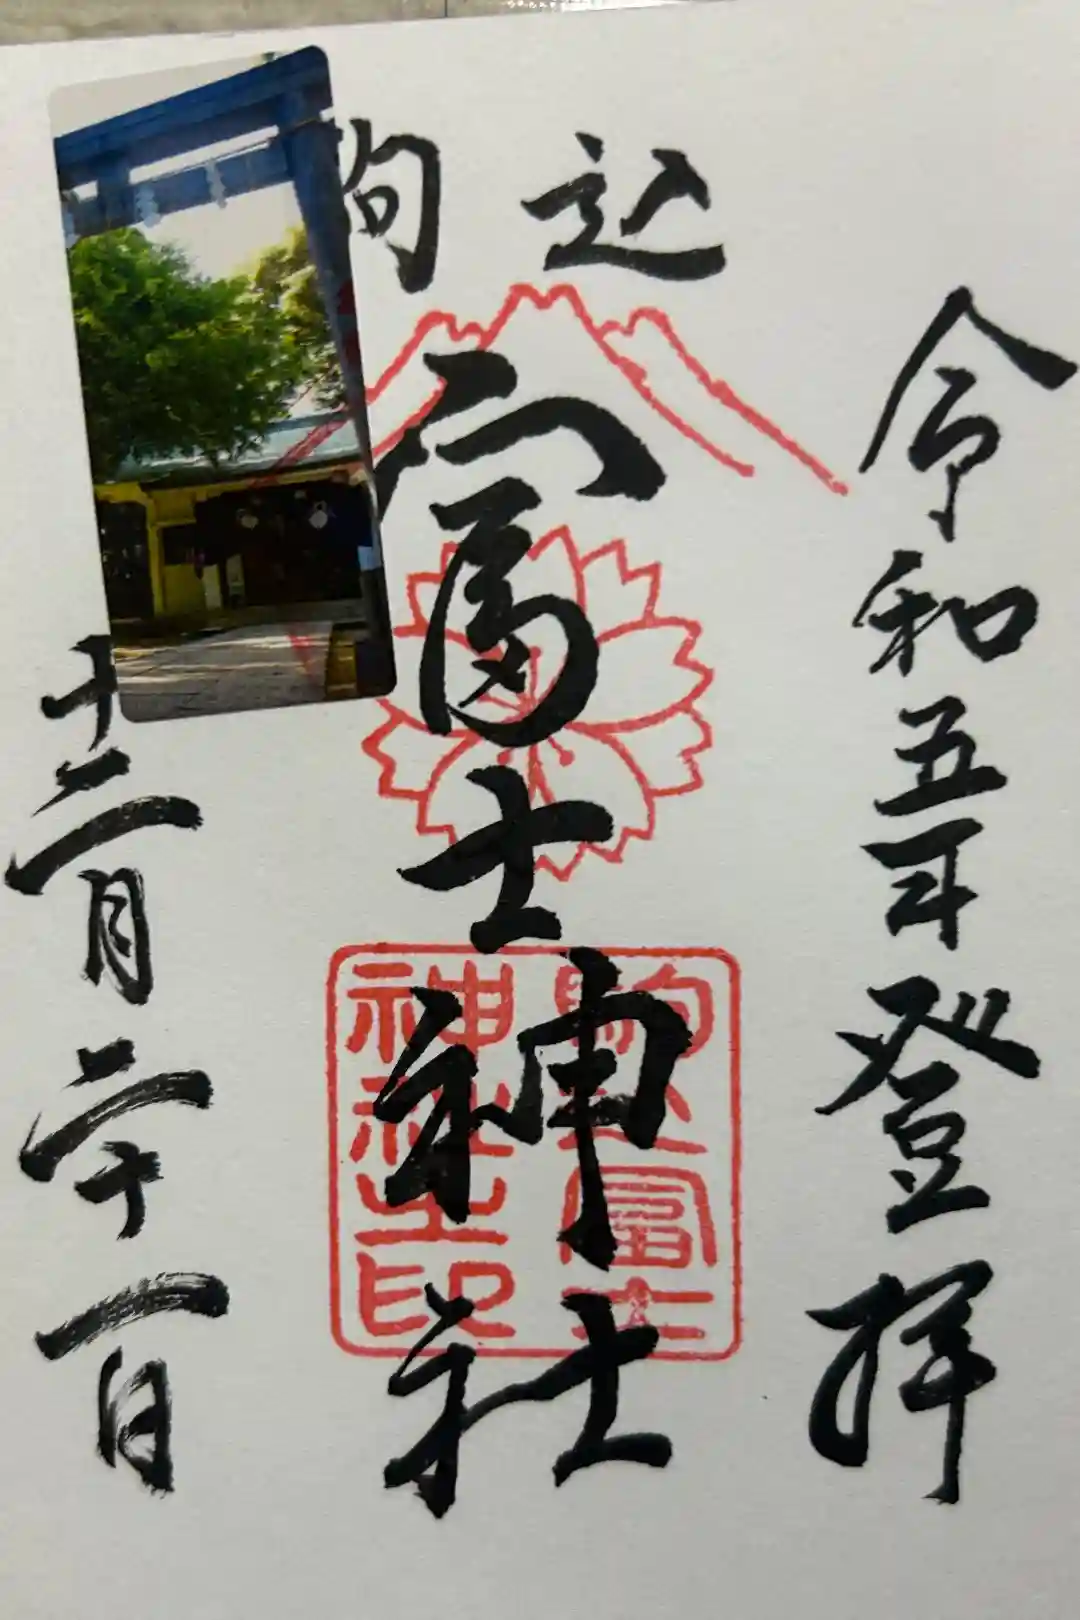 駒込
令和五年登拝
富士神社
十二月二十一日
駒込富士
神社之印